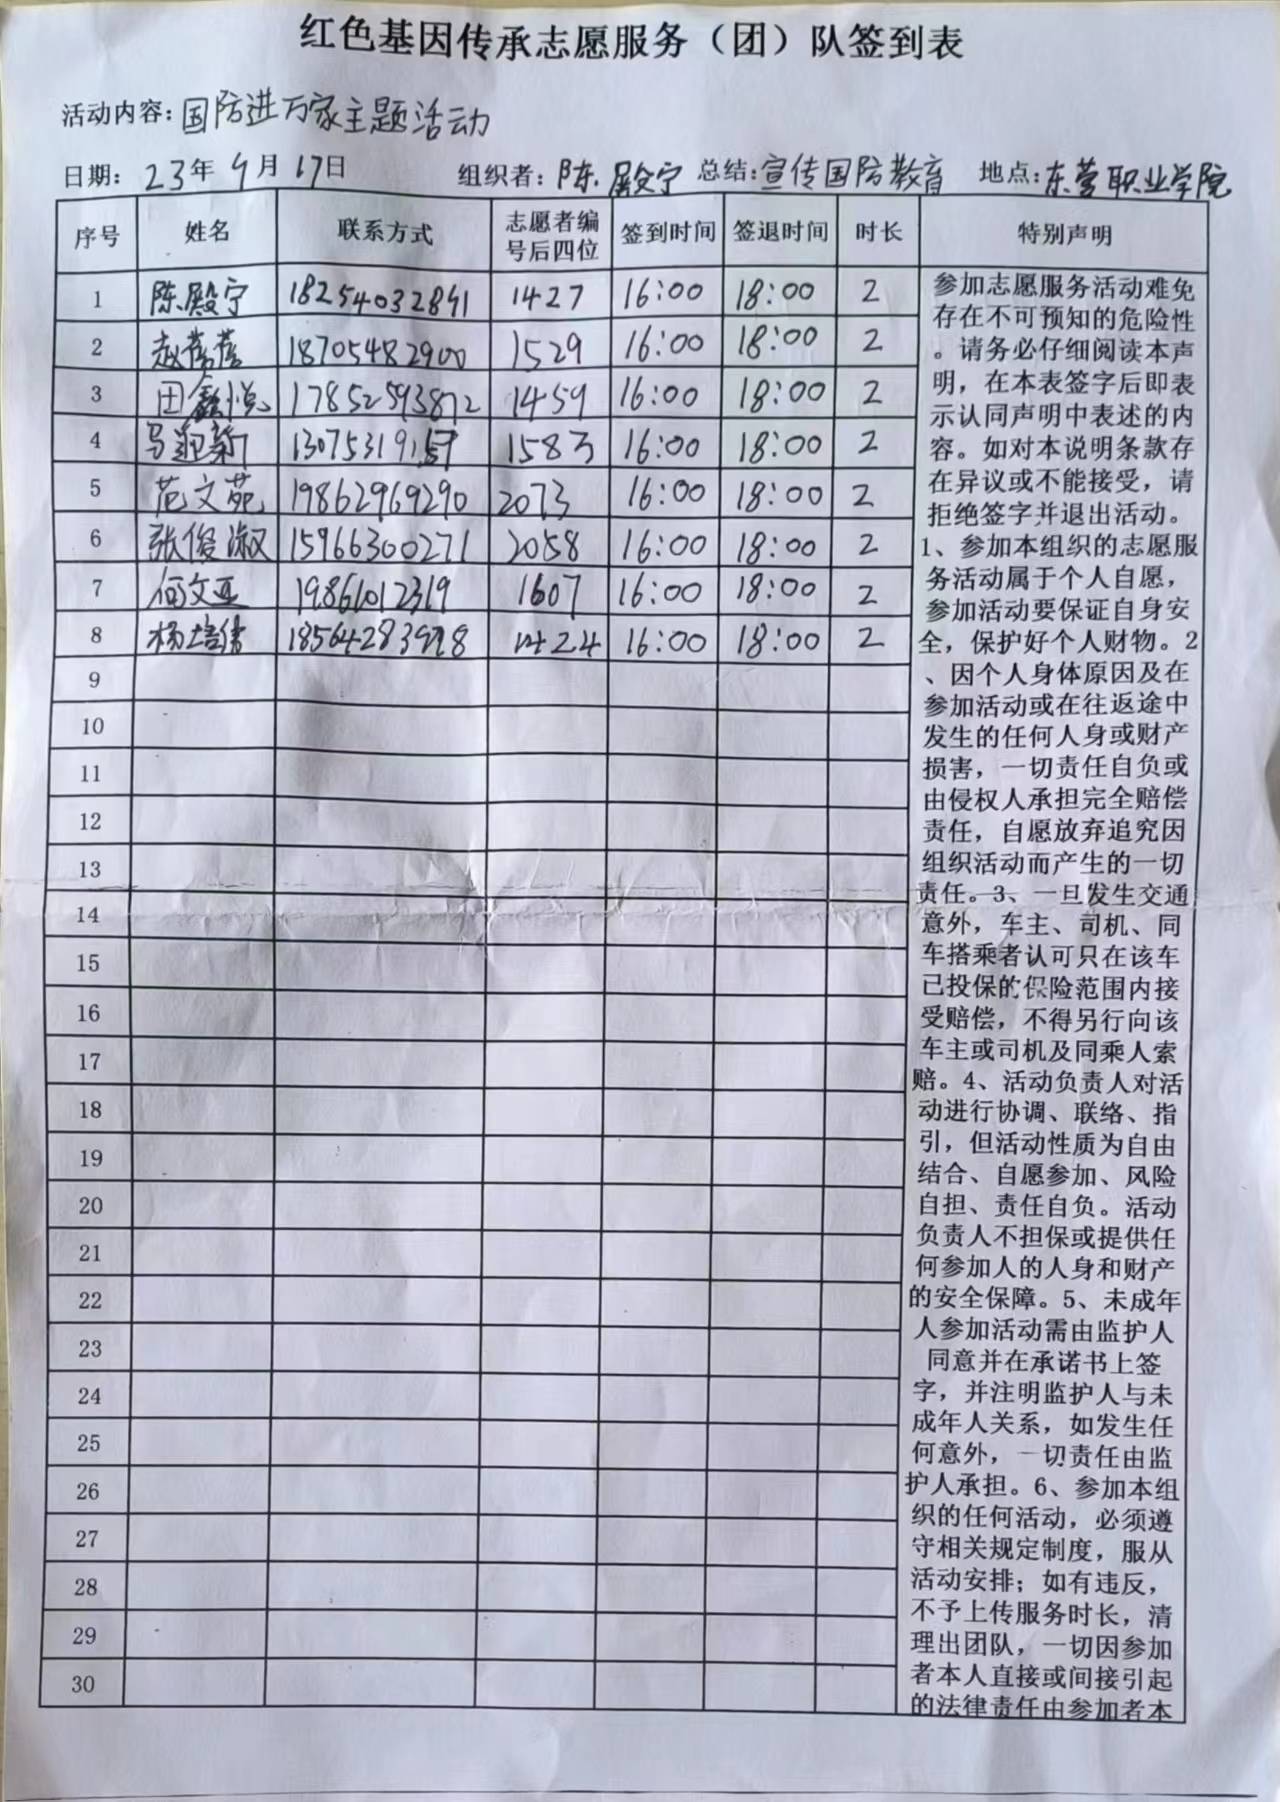 红色基因传承志愿服务（团）队签到表
活动内容：国防进万家主题活动
日期：23年9月17日 组织者：陈殿宁 总结：宣传国防教育 地点：东营职业学院
序号 姓名 联系方式 志愿者编号后四位 签到时间 签退时间 时长 特别声明
1 陈殿宁 18254032891 1427 16:00 18:00 2
2 赵蓓蓓 18705482900 1529 16:00 18:00 2
3 田鑫悦 17852593872 1459 16:00 18:00 2
4 马迎新 1583 16:00 18:00 2
5 范文苑 19862969290 2073 16:00 18:00 2
6 张俊淑 15966300271 2058 16:00 18:00 2
7 何文亚 19861012319 1607 16:00 18:00 2
8 杨培伟 1424 16:00 18:00 2
9
10
11
12
13
14
15
16
17
18
19
20
21
22
23
24
25
26
27
28
29
30
参加志愿服务活动难免
存在不可预知的危险性
。请务必仔细阅读本声
明，在本表签字后即表
示认同声明中表述的内
容。如对本说明条款存
在异议或不能接受，请
拒绝签字并退出活动。
1、参加本组织的志愿服
务活动属于个人自愿，
参加活动要保证自身安
全，保护好个人财物。2
、因个人身体原因及在
参加活动或在往返途中
发生的任何人身或财产
损害，一切责任自负或
由侵权人承担完全赔偿
责任，自愿放弃追究因
组织活动而产生的一切
责任。3、一旦发生交通
意外，车主、司机、同
车搭乘者认可只在该车
已投保的保险范围内接
受赔偿，不得另行向该
车主或司机及同乘人索
赔。4、活动负责人对活
动进行协调、联络、指
引，但活动性质为自由
结合、自愿参加、风险
自担、责任自负。活动
负责人不担保或提供任
何参加人的人身和财产
的安全保障。5、未成年
人参加活动需由监护人
同意并在承诺书上签
字，并注明监护人与未
成年人关系，如发生任
何意外，一切责任由监
护人承担。6、参加本组
织的任何活动，必须遵
守相关规定制度，服从
活动安排；如有违反，
不予上传服务时长，清
理出团队，一切因参加
者本人直接或间接引起
的法律责任由参加者本